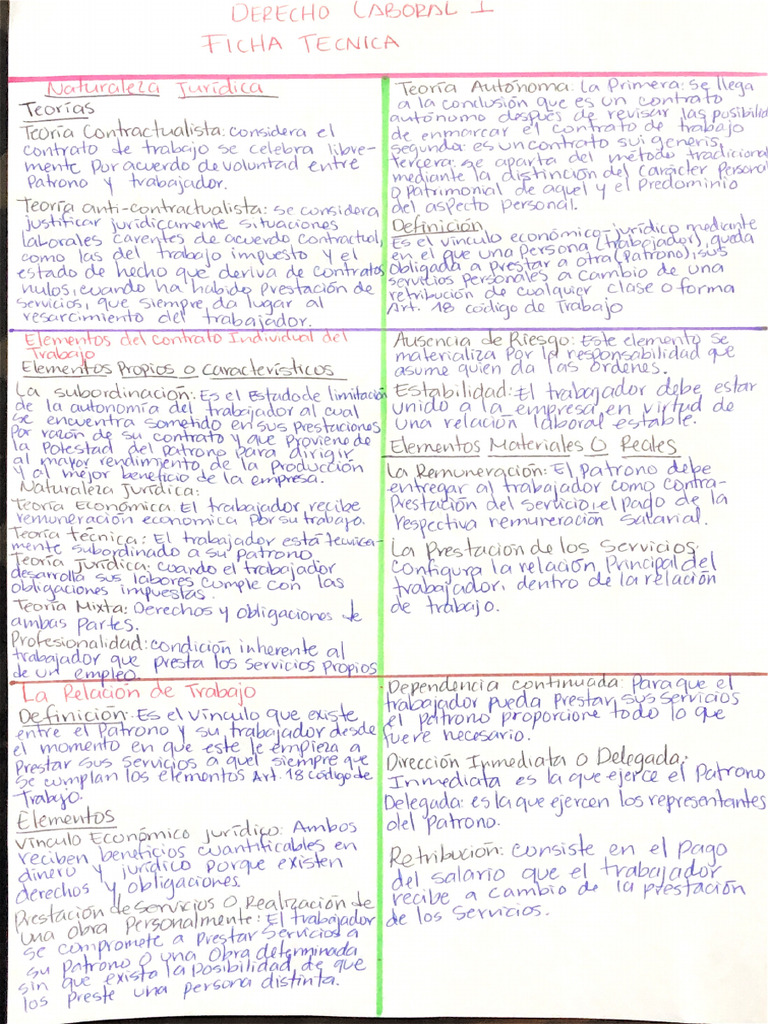 DERECHO LABORAL I
FICHA TECNICA
Naturaleza Jurídica
Teorías
Teoría Contractualista: considera el
contrato de trabajo se celebra libre-
mente por acuerdo de voluntad entre
Patrono y trabajador.
Teoría anti-contractualista: se considera
justificar jurídicamente situaciones
laborales carentes de acuerdo contractual,
como las del trabajo impuesto y el
estado de hecho que deriva de contratos
nulos, cuando ha habido prestación de
servicios, que siempre da lugar al
resarcimiento del trabajador.
Teoría Autónoma: La Primera: se llega
a la conclusión que es un contrato
autónomo después de revisar las posibilid
de enmarcar el contrato de trabajo
segunda: es un contrato sui generis,
tercera: se aparta del método tradicional
mediante la distinción del carácter Personal
o patrimonial de aquel y el Predominio
del aspecto personal.
Definición
Es el vínculo económico-jurídico mediante
en el que una persona (trabajador), queda
obligada a prestar a otra (patrono), sus
servicios personales a cambio de una
retribución de cualquier clase o forma
Art. 18 código de Trabajo
Elementos del Contrato Individual del
Trabajo
Elementos Propios o Característicos
La subordinación: Es el Estado de limitación
de la autonomía del trabajador al cual
se encuentra sometido en sus prestaciones
Por razón de su contrato y que proviene de
la Potestad del patrono para dirigir
al mayor rendimiento de la Producción
y al mejor beneficio de la empresa.
Naturaleza Jurídica:
Teoría Económica El trabajador recibe
remuneración economica por su trabajo.
Teoría técnica: El trabajador está técnica-
mente subordinado a su Patrono.
Teoría Jurídica: cuando el trabajador
desarrolla sus labores cumple con las
obligaciones impuestas.
Teoría Mixta: Derechos y obligaciones de
ambas partes.
Profesionalidad: condición inherente al
trabajador que presta los servicios propios
de un empleo.
Ausencia de Riesgo: Este elemento se
materializa por la responsabilidad que
asume quien da las órdenes.
Estabilidad: El trabajador debe estar
unido a la empresa en virtud de
una relación laboral estable.
Elementos Materiales O Reales
La Remuneración: El Patrono debe
entregar al trabajador como contra-
Prestación del servicio, el pago de la
respectiva remuneración salarial.
La Prestación de los Servicios:
Configura la relación Principal del
trabajador, dentro de la relación
de trabajo.
La Relación de Trabajo
Definición: Es el vínculo que existe
entre el Patrono y su trabajador desde
el momento en que este le empieza a
Prestar sus servicios a aquel siempre que
se cumplan los elementos Art. 18 código de
Trabajo.
Elementos
Vínculo Económico jurídico: Ambos
reciben beneficios cuantificables en
dinero y jurídico porque existen
derechos y obligaciones.
Prestación de servicios O Realización de
una obra Personalmente: El trabajador
se compromete a Prestar servicios a
su Patrono o una Obra determinada
sin que exista la posibilidad de que
los preste una persona distinta.
Dependencia continuada: Para que el
trabajador pueda Prestar sus servicios
el patrono proporcione todo lo que
fuere necesario.
Dirección Inmediata o Delegada:
Inmediata es la que ejerce el Patrono
Delegada: es la que ejercen los representantes
del Patrono.
Retribución: consiste en el Pago
del salario que el trabajador
recibe a cambio de la prestación
de los servicios.